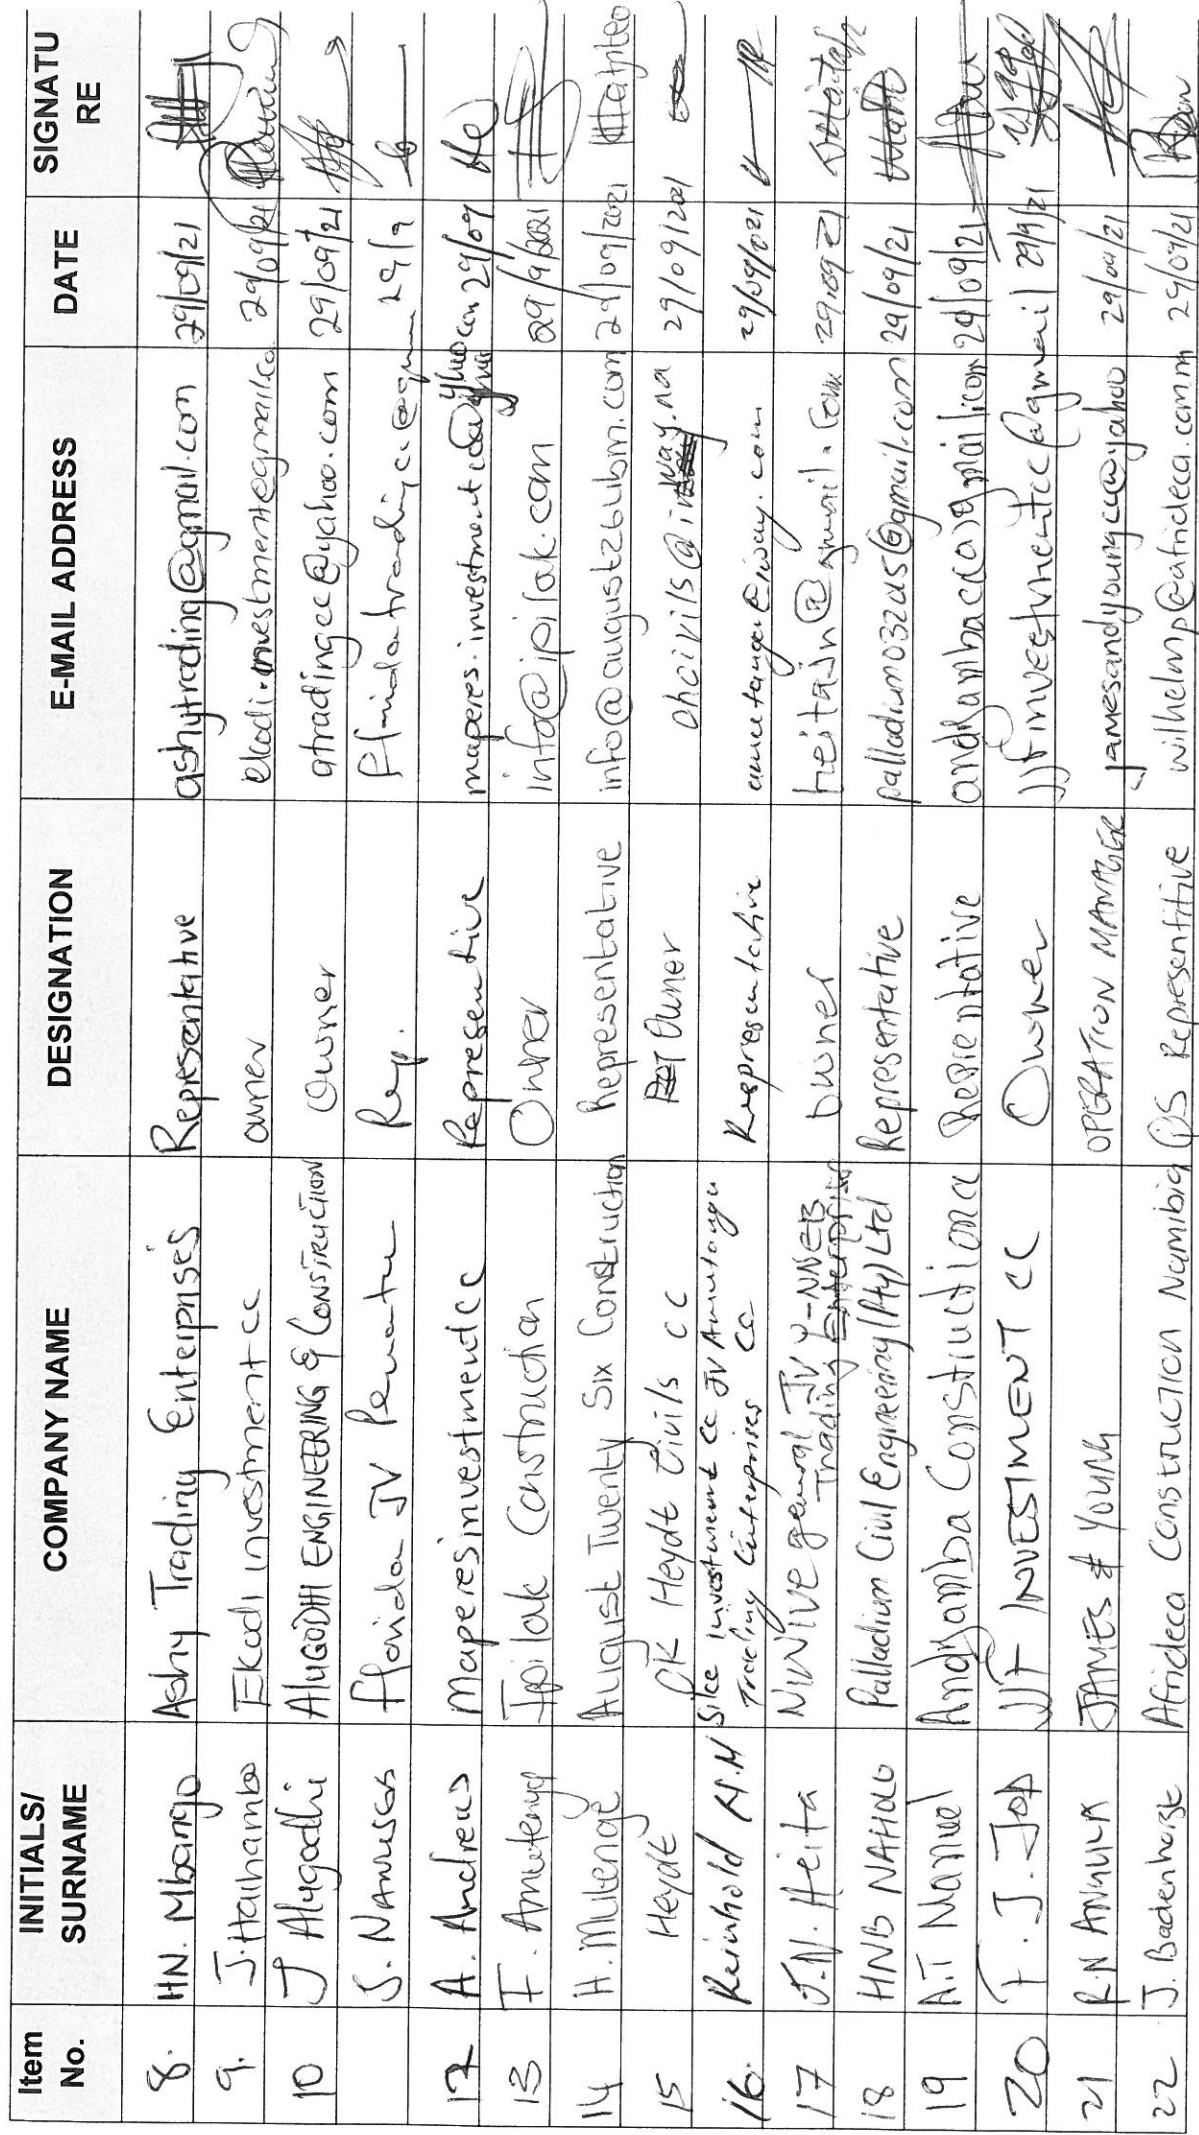 Item No. INITIALS/ SURNAME COMPANY NAME DESIGNATION E-MAIL ADDRESS DATE SIGNATU RE
8. HN. Mbango Ashy Trading Enterprises Representative ashytrading@gmail.com 29/09/21
9. J. Haihambo Ekadi investment cc owner ekadi.investment@gmail.co 29/09/21
10 J Alugodhi ALUGODHI ENGINEERING & CONSTRUCTION Owner atradingcc@yahoo.com 29/09/21
S. NANUSES ffrinda JV Penatu Rep. 29/9
12 A. Andreas Maperesinvestmentcc Representive maperes.investmentcc@yahoo.com 29/09
13 F. Amutenya Ipilak Construction Owner info@ipilak.com 29/9/2021
14 H. Mulenga August Twenty Six Construction Representative info@august26ubm.com 29/09/2021
15 Heydt PK Heydt Civils CC Owner phcivils@iway.na 29/09/2021
16. Reinhold H.N Sike Investment cc JV Amutanga Trading Enterprises cc Representative amutanga@iway.com 29/09/2021
17 J.N. Heita NINIVE general JV Y-NNEB Trading Enterprise Owner heitajn@gmail.com 29.09.21
18 HNB NAHOLO Palladium Civil Engineering (Pty) Ltd Representative palladium032ds@gmail.com 29/09/21
19 A.T Manuel Andjamba Construction cc Representative andjambacc@gmail.com 29/09/21
20 F. J. Job JJF INVESTMENT CC Owner jjfinvestmentcc@gmail 29/9/21
21 R.N ANGULA JAMES & YOUNG OPERATION MANAGER jamesandyoungcc@yahoo 29/09/21
22 J. Badenhorst Africdeca Construction Namibia QS Representitive wilhelmp@africdeca.comm 29/09/21